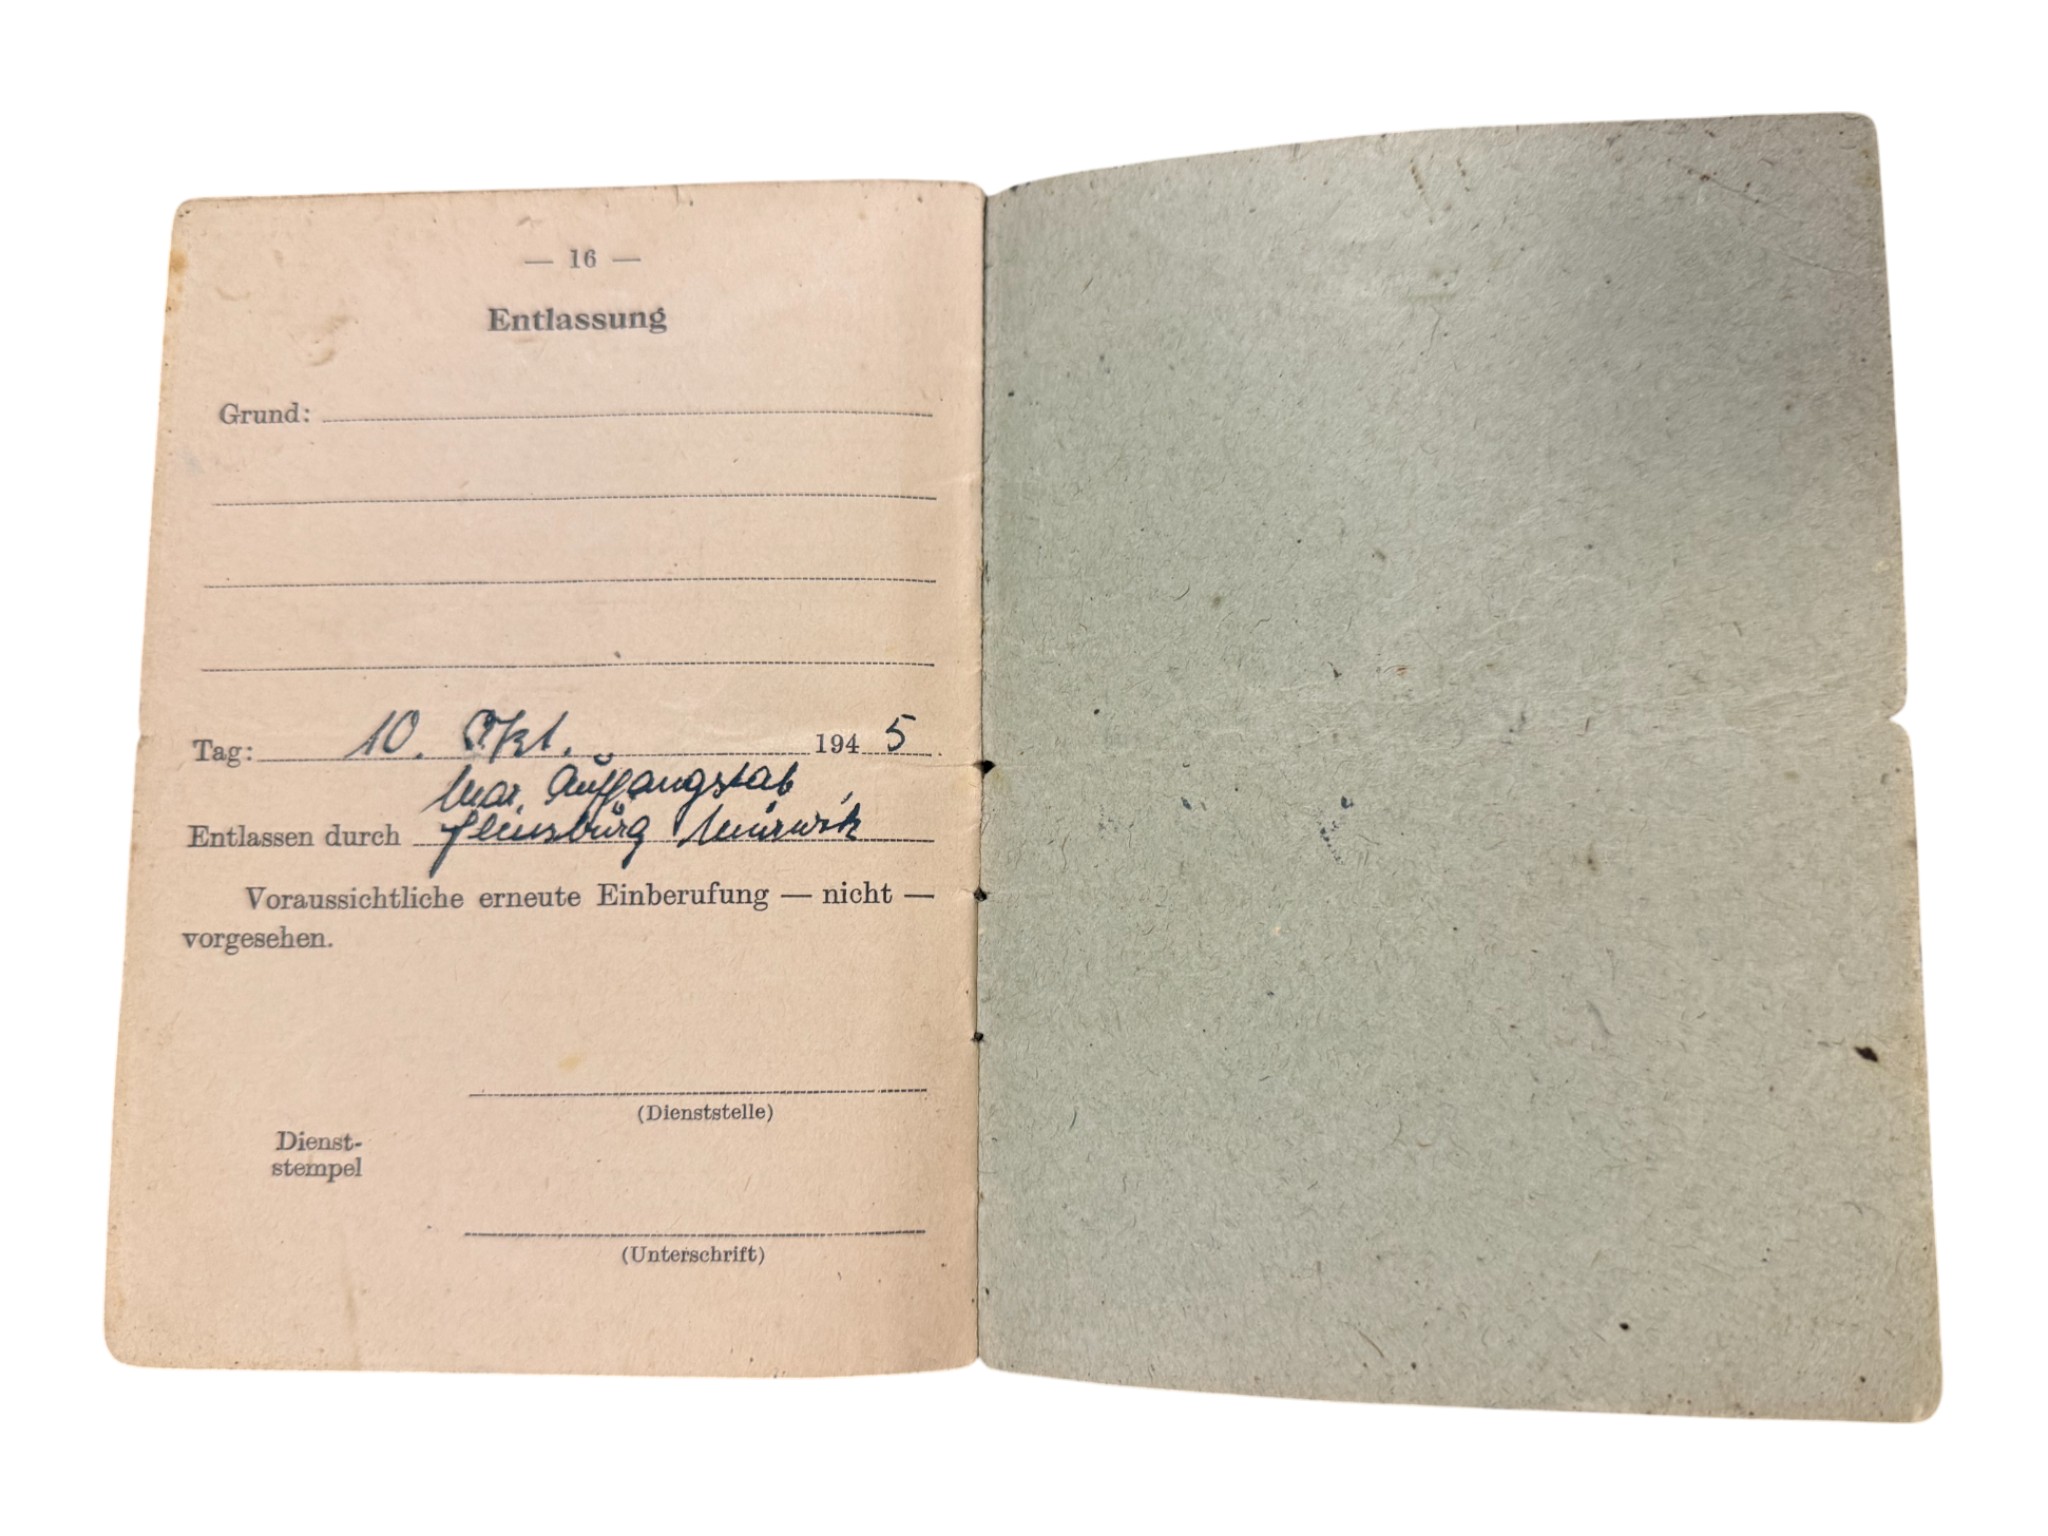 — 16 —
Entlassung
Grund:
Tag: 10. Okt. 1945.
Mar. Auffangstab
Entlassen durch Flensburg Mürwik
Voraussichtliche erneute Einberufung — nicht —
vorgesehen.
(Dienststelle)
Dienst-
stempel
(Unterschrift)